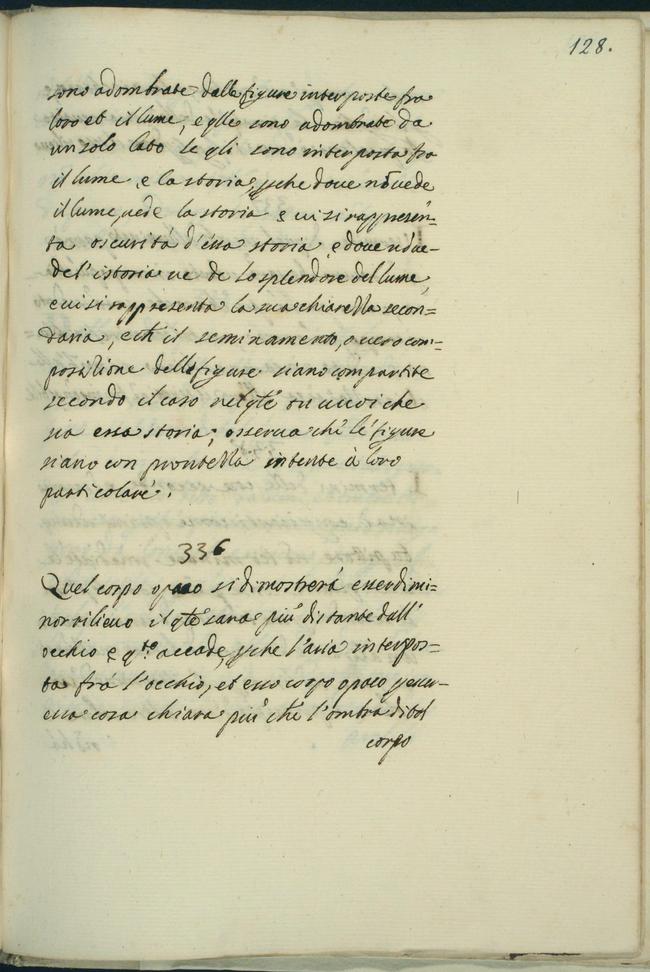 128.
sono adombrate dalle figure interposte fra
loro et il lume, e q̃lle sono adombrate da
un solo lato se gli sono interposta fra
il lume e la storia, p̃che dove nõ vede
il lume, vede la storia e vi si rappresen=
ta oscurità d'essa storia, e dove nõ ve=
de l'istoria ve de lo splendore del lume,
e vi si rappresenta la sua chiarezza secon=
daria, e ch̃ il seminamento, o vero com=
posizione delle figure siano compartite
secondo il caso nel q̃le tu vuoi che
sia essa storia; osserva ch̃ le figure
siano con prontezza intente à loro
particolare.
336
Quel corpo opaco si dimostrerà esser di mi=
nor rilievo il q̃le sarà più distante dall'
occhio e q.to accade, p̃che l'aria interpos=
ta frà l'occhio, et esso corpo opaco p esser
essa cosa chiara più ch̃ l'ombra di tal
corpo